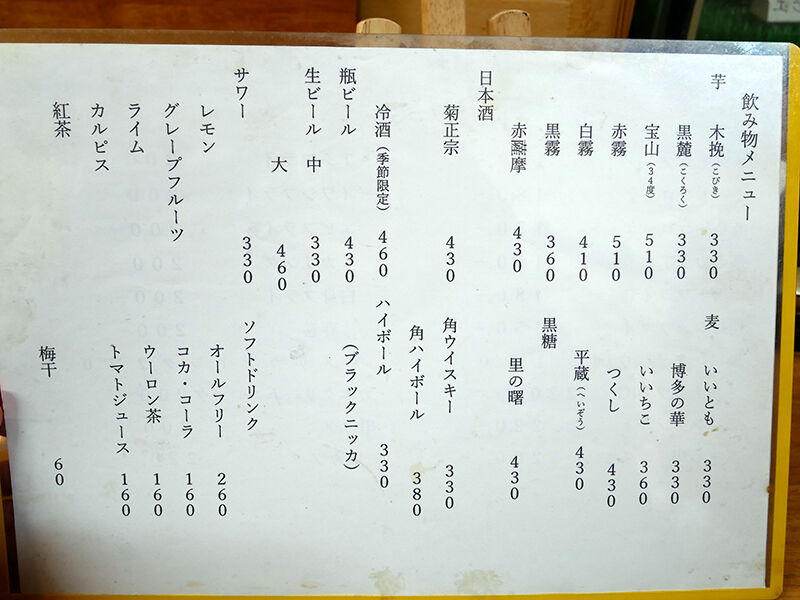 飲み物メニュー
芋
木挽(こびき) 330
黒麓(こくろく) 330
宝山(34度) 510
赤霧 510
白霧 410
黒霧 360
赤薩摩 430
日本酒
菊正宗 430
冷酒(季節限定) 460
瓶ビール 430
生ビール 中 330
大 460
サワー 330
レモン
グレープフルーツ
ライム
カルピス
紅茶
麦
いいとも 330
博多の華 330
いいちこ 360
つくし 430
平蔵(へいぞう) 430
黒糖
里の曙 430
角ウイスキー 330
角ハイボール 380
ハイボール 330
(ブラックニッカ)
ソフトドリンク
オールフリー 260
コカ・コーラ 160
ウーロン茶 160
トマトジュース 160
梅干 60